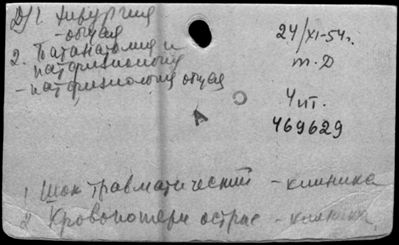 Д/1 хирургия
- общая
2. Патанатомия и
патфизиология
- патфизиология общая
24/XI-54г.
т. Д
Чит.
469629
А
1 Шок травматический - клиника
2 Кровопотери острые - клиника